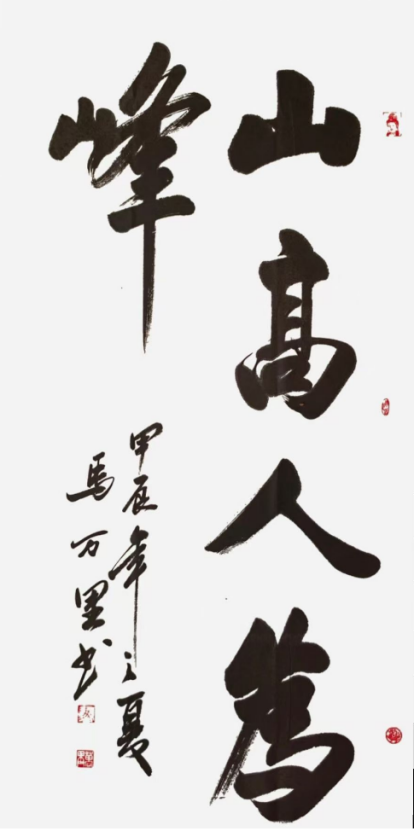 山高人為
峰
甲辰年之夏
馬万里书